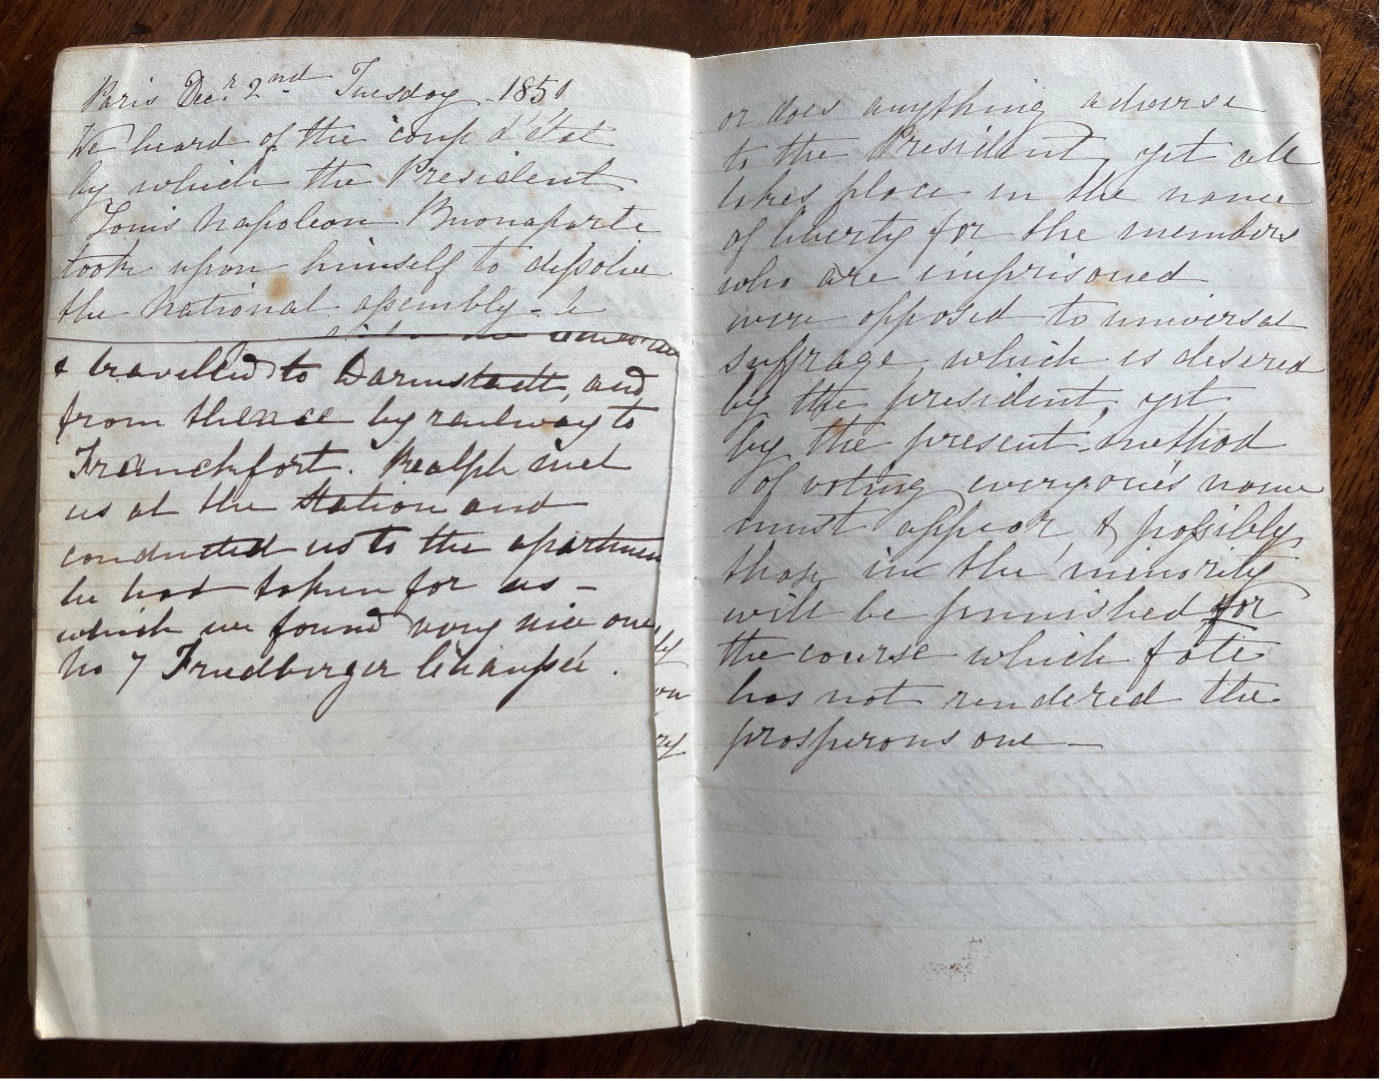 Paris Decr. 2nd Tuesday 1851
We heard of the coup d'état
by which the President
Louis Napoleon Buonaparte
took upon himself to dissolve
the National assembly -
& travelled to Darmstadt, and
from thence by railway to
Franckfort. Ralph met
us at the station and
conducted us to the apartmen
he had taken for us -
which we found very nice one
No 7 Friedberger Chaussée.
ry
or does anything adverse
to the President, yet all
takes place in the name
of liberty for the members
who are imprisoned
were opposed to universal
suffrage which is desired
by the president, yet
by the present method
of voting everyone's name
must appear & possibly
those in the minority
will be punished for
the course which fate
has not rendered the
prosperous one -